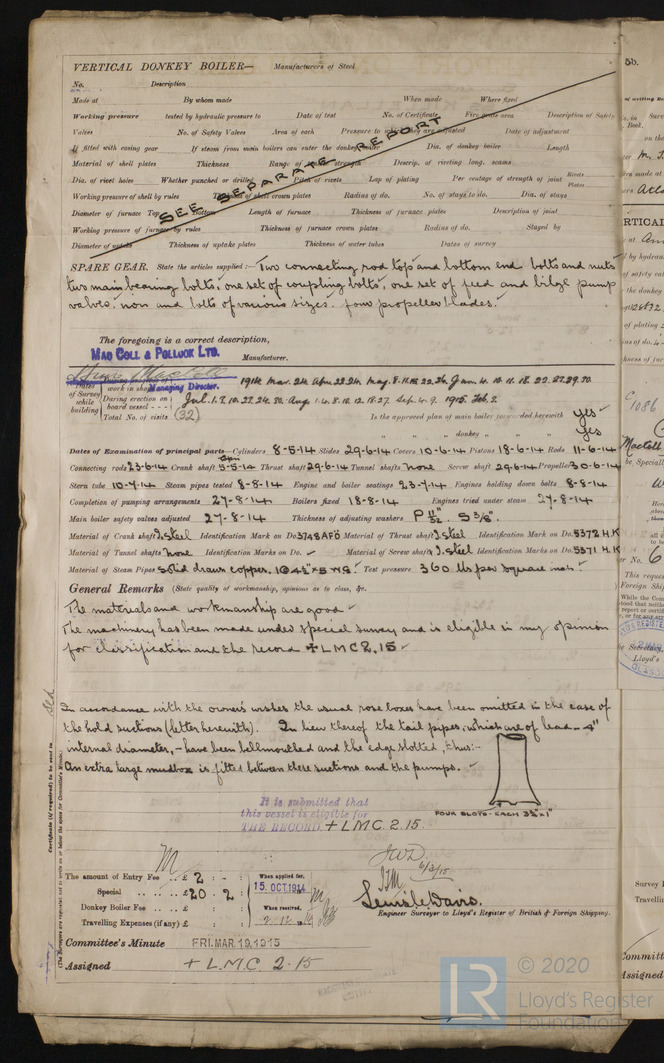 VERTICAL DONKEY BOILER— Manufacturers of Steel
No. Description
Made at By whom made When made Where fixed
Working pressure tested by hydraulic pressure to Date of test No. of Certificate Fire grate area Description of Safety
Valves No. of Safety Valves Area of each Pressure to which they are adjusted Date of adjustment
If fitted with easing gear If steam from main boilers can enter the donkey boiler Dia. of donkey boiler Length
Material of shell plates Thickness Range of tensile strength Descrip. of riveting long. seams
Dia. of rivet holes Whether punched or drilled Pitch of rivets Lap of plating Per centage of strength of joint Rivets Plates
Working pressure of shell by rules Thickness of shell crown plates Radius of do. No. of stays to do. Dia. of stays
Diameter of furnace Top Bottom Length of furnace Thickness of furnace plates Description of joint
Working pressure of furnace by rules Thickness of furnace crown plates Radius of do. Stayed by
Diameter of uptake Thickness of uptake plates Thickness of water tubes Dates of survey
SEE SEPARATE REPORT
SPARE GEAR. State the articles supplied:— Two connecting rod top and bottom end bolts and nuts
two main bearing bolts, one set of coupling bolts, one set of feed and bilge pump
valves. iron and bolts of various sizes. four propeller blades.
The foregoing is a correct description,
MAC COLL & POLLOCK LTD. Manufacturer.
Managing Director.
Dates of Survey while building
During progress of work in shops - - 1914 Mar. 24. Apr. 22.24. May. 8.11.15.22.26. Jun. 4. 10. 11. 18. 22. 27. 29. 30.
During erection on board vessel - - - Jul. 1. 7. 10. 27. 24. 30. Aug. 1. 4. 8. 10. 12. 18. 27. Sep. 4. 9. 1915. Feb. 2.
Total No. of visits (32) Is the approved plan of main boiler forwarded herewith yes
" " " donkey " " " yes
Dates of Examination of principal parts—Cylinders 8-5-14 Slides 29-6-14 Covers 10-6-14 Pistons 18-6-14 Rods 11-6-14
Connecting rods 23-6-14 Crank shaft 5-5-14 Thrust shaft 29-6-14 Tunnel shafts None Screw shaft 29-6-14 Propeller 30-6-14
Stern tube 10-7-14 Steam pipes tested 8-8-14 Engine and boiler seatings 23-7-14 Engines holding down bolts 8-8-14
Completion of pumping arrangements 27-8-14 Boilers fixed 18-8-14 Engines tried under steam 27-8-14
Main boiler safety valves adjusted 27-8-14 Thickness of adjusting washers P 11/32. S 3/8".
Material of Crank shaft I.steel Identification Mark on Do. 3748AFD Material of Thrust shaft I.steel Identification Mark on Do. 5372 H.K
Material of Tunnel shafts None Identification Marks on Do. Material of Screw shafts I.steel Identification Marks on Do. 5371 H.K
Material of Steam Pipes Solid drawn copper. Test pressure 360 lbs per square inch.
General Remarks (State quality of workmanship, opinions as to class, &c.
The materials and workmanship are good
The machinery has been made under special survey and is eligible in my opinion
for classification and the record +LMC 2.15
In accordance with the owners wishes the usual rose boxes have been omitted in the case of
the hold suctions (letter herewith). In lieu thereof the tail pipes, which are of lead - 4"
internal diameter, - have been bellmouthed and the edge slotted, thus:-
An extra large mudbox is fitted between these suctions and the pumps.
FOUR SLOTS - EACH 3½" x 1"
It is submitted that
this vessel is eligible for
THE RECORD + LMC. 2.15.
JWD
6/3/15
The amount of Entry Fee .. £ 2 : - : When applied for,
Special .. .. .. £ 20 . 2 : 15. OCT. 1914
Donkey Boiler Fee .. .. £ : : When received,
Travelling Expenses (if any) £ : :
Engineer Surveyor to Lloyd's Register of British & Foreign Shipping.
Committee's Minute FRI. MAR. 19. 1915
Assigned + L.M.C. 2.15
© 2020
LR
Lloyd's Register
Foundation